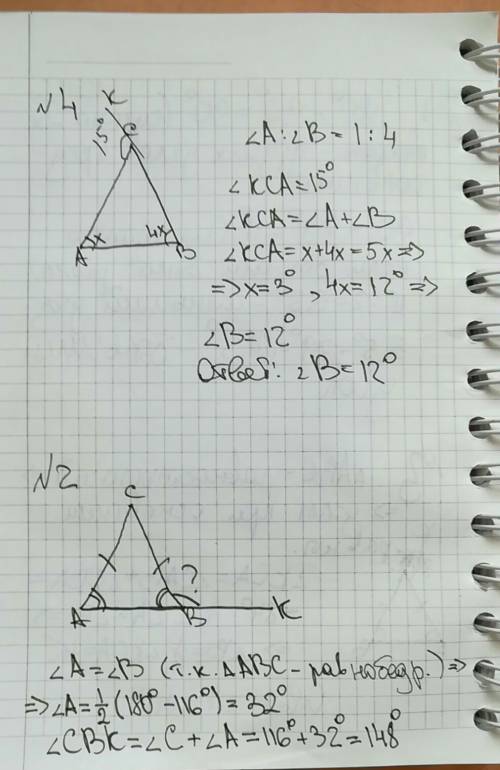 №4
K
C
15°
x
4x
A
B
∠A:∠B = 1:4
∠KCA=15°
∠KCA=∠A+∠B
∠KCA=x+4x=5x=>
=>x=3°, 4x=12°=>
∠B=12°
Ответ: ∠B=12°
№2
C
?
A
B
K
∠A=∠B (т.к. ΔABC – равнобедр.)=>
=>∠A=½(180°-116°)=32°
∠CBK=∠C+∠A=116°+32°=148°